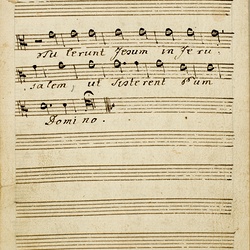 rtu lerunt Jesum in Je ru.
salem, ut sisterent eum
Domi no.